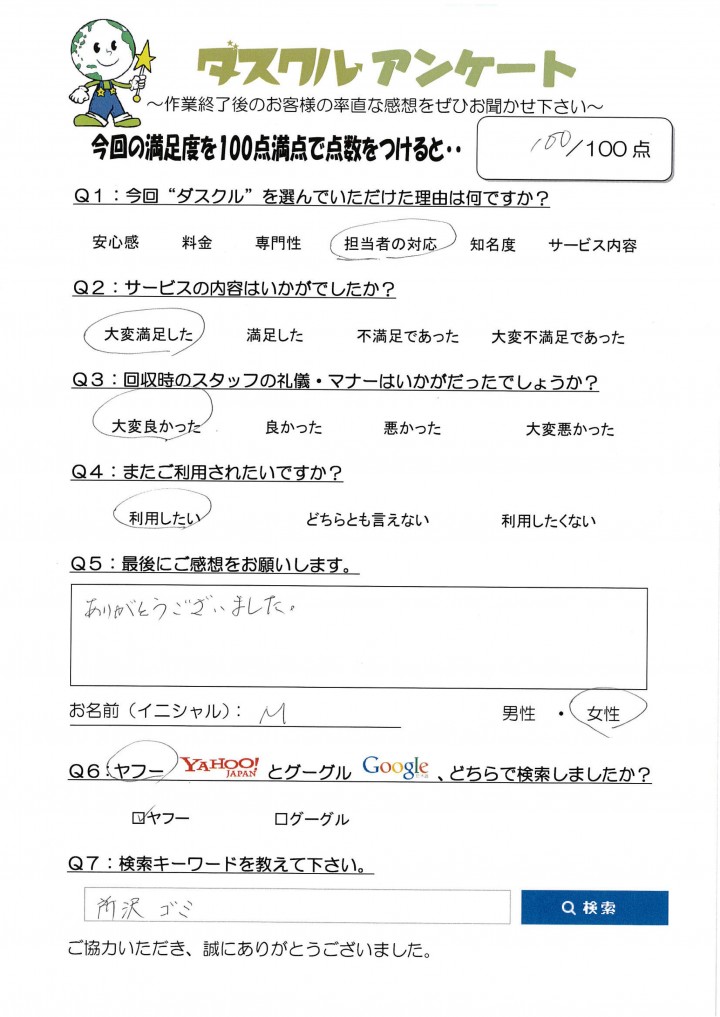 ダスクルアンケート
～作業終了後のお客様の率直な感想をぜひお聞かせ下さい～
今回の満足度を100点満点で点数をつけると・・ 100/100点
Q1：今回“ダスクル”を選んでいただけた理由は何ですか？
安心感 料金 専門性 担当者の対応 知名度 サービス内容
Q2：サービスの内容はいかがでしたか？
大変満足した 満足した 不満足であった 大変不満足であった
Q3：回収時のスタッフの礼儀・マナーはいかがだったでしょうか？
大変良かった 良かった 悪かった 大変悪かった
Q4：またご利用されたいですか？
利用したい どちらとも言えない 利用したくない
Q5：最後にご感想をお願いします。
ありがとうございました。
お名前（イニシャル）： M 男性 ・ 女性
Q6：ヤフー YAHOO! JAPAN とグーグル Google 、どちらで検索しましたか？
☑ヤフー □グーグル
Q7：検索キーワードを教えて下さい。
所沢 ゴミ 検索
ご協力いただき、誠にありがとうございました。